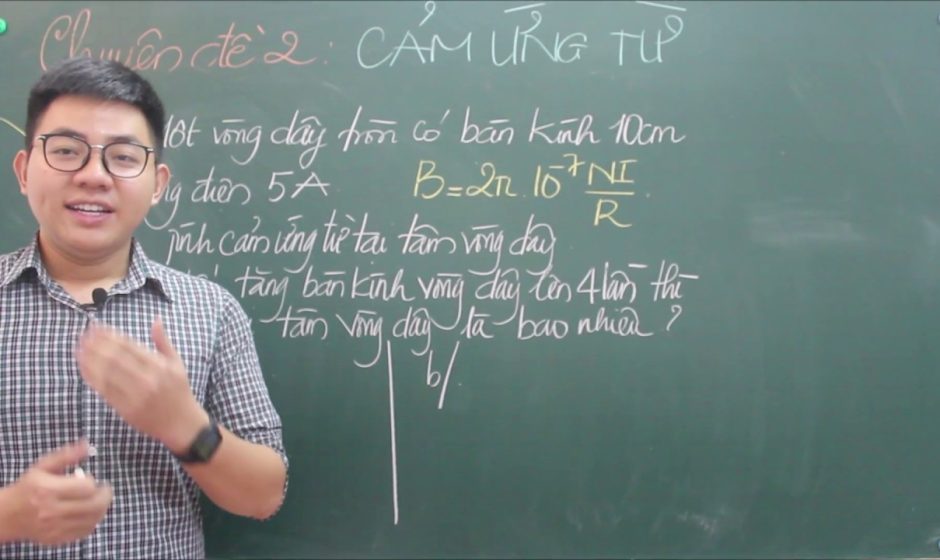 Chuyên đề 2: CẢM ỨNG TỪ
Một vòng dây tròn có bán kính 10cm
điện 5A B = 2π.10⁻⁷ NI/R
Tính cảm ứng từ tại tâm vòng dây
tăng bán kính vòng dây lên 4 lần thì
tâm vòng dây là bao nhiêu ?
b/